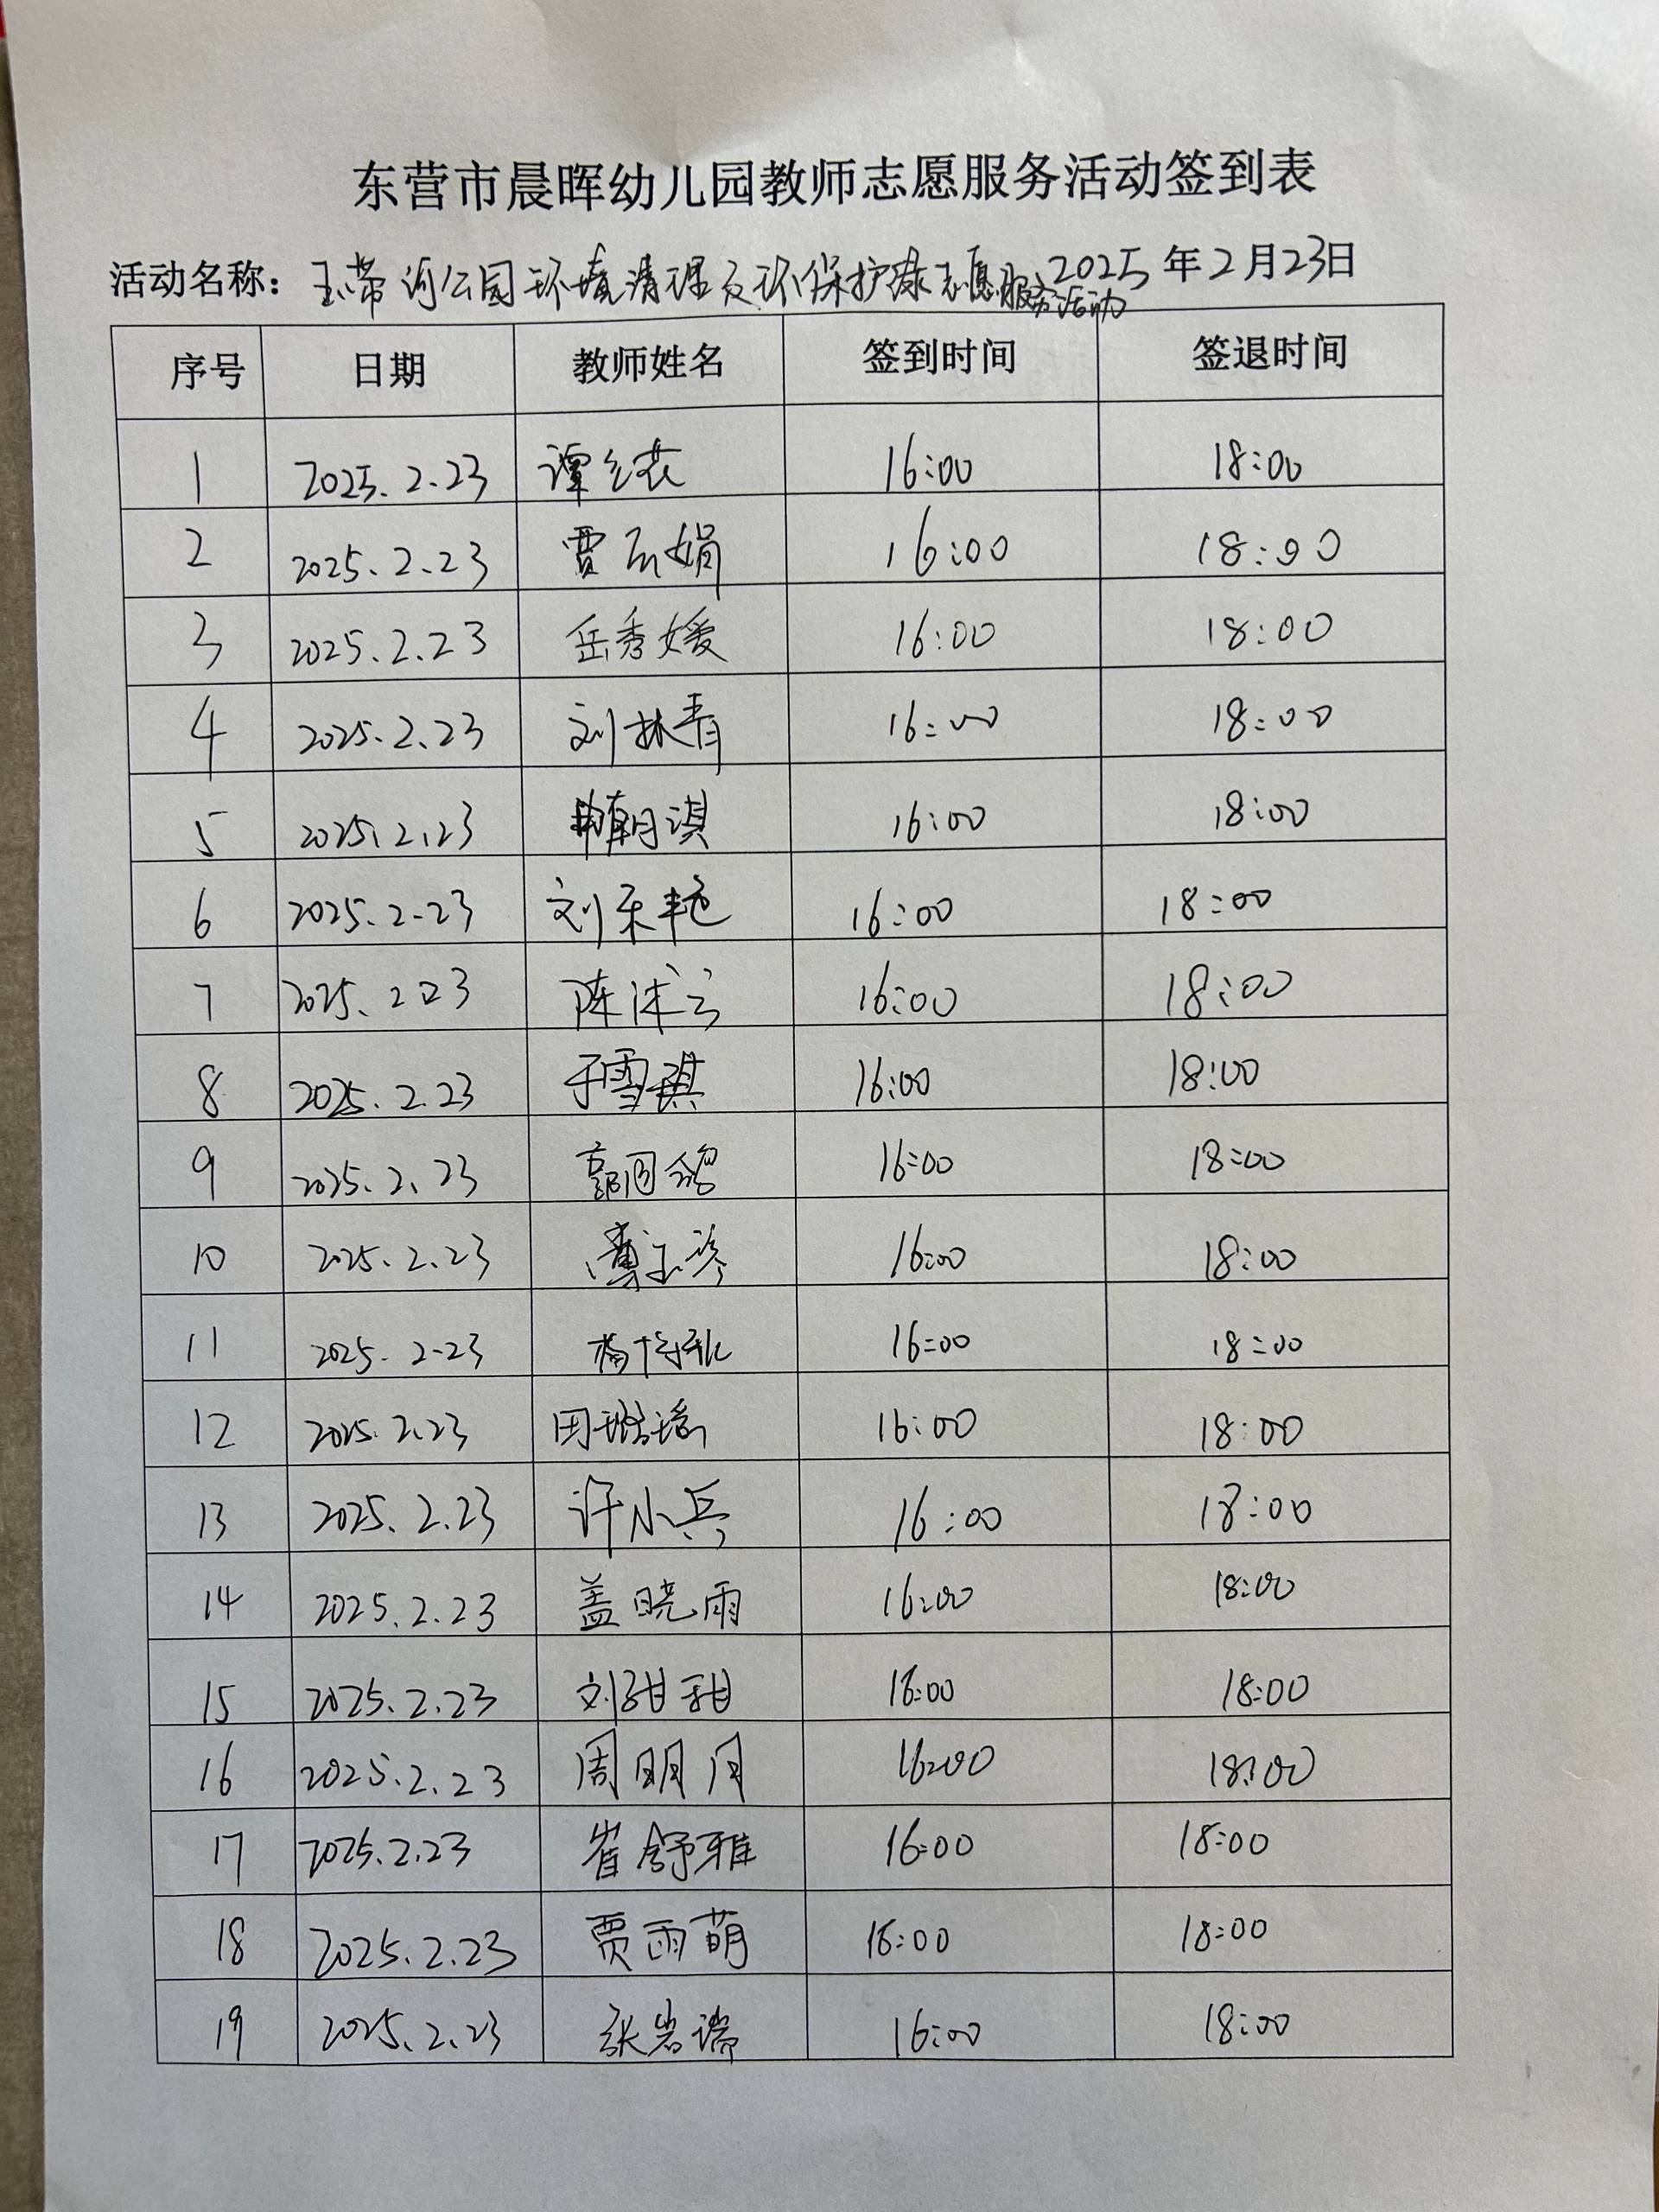 东营市晨晖幼儿园教师志愿服务活动签到表
活动名称：玉带河公园环境清理及环保护绿志愿服务活动 2025年2月23日
序号 日期 教师姓名 签到时间 签退时间
1 2025.2.23 谭 16:00 18:00
2 2025.2.23 贾云娟 16:00 18:00
3 2025.2.23 岳秀媛 16:00 18:00
4 2025.2.23 刘林青 16:00 18:00
5 2025.2.23 淇 16:00 18:00
6 2025.2.23 刘乐艳 16:00 18:00
7 2025.2.23 陈 16:00 18:00
8 2025.2.23 于雪琪 16:00 18:00
9 2025.2.23 郭 16:00 18:00
10 2025.2.23 16:00 18:00
11 2025.2.23 杨 16:00 18:00
12 2025.2.23 田璐瑶 16:00 18:00
13 2025.2.23 许小兵 16:00 18:00
14 2025.2.23 盖晓雨 16:00 18:00
15 2025.2.23 刘甜甜 16:00 18:00
16 2025.2.23 周明月 16:00 18:00
17 2025.2.23 崔舒雅 16:00 18:00
18 2025.2.23 贾雨萌 16:00 18:00
19 2025.2.23 张岩瑞 16:00 18:00